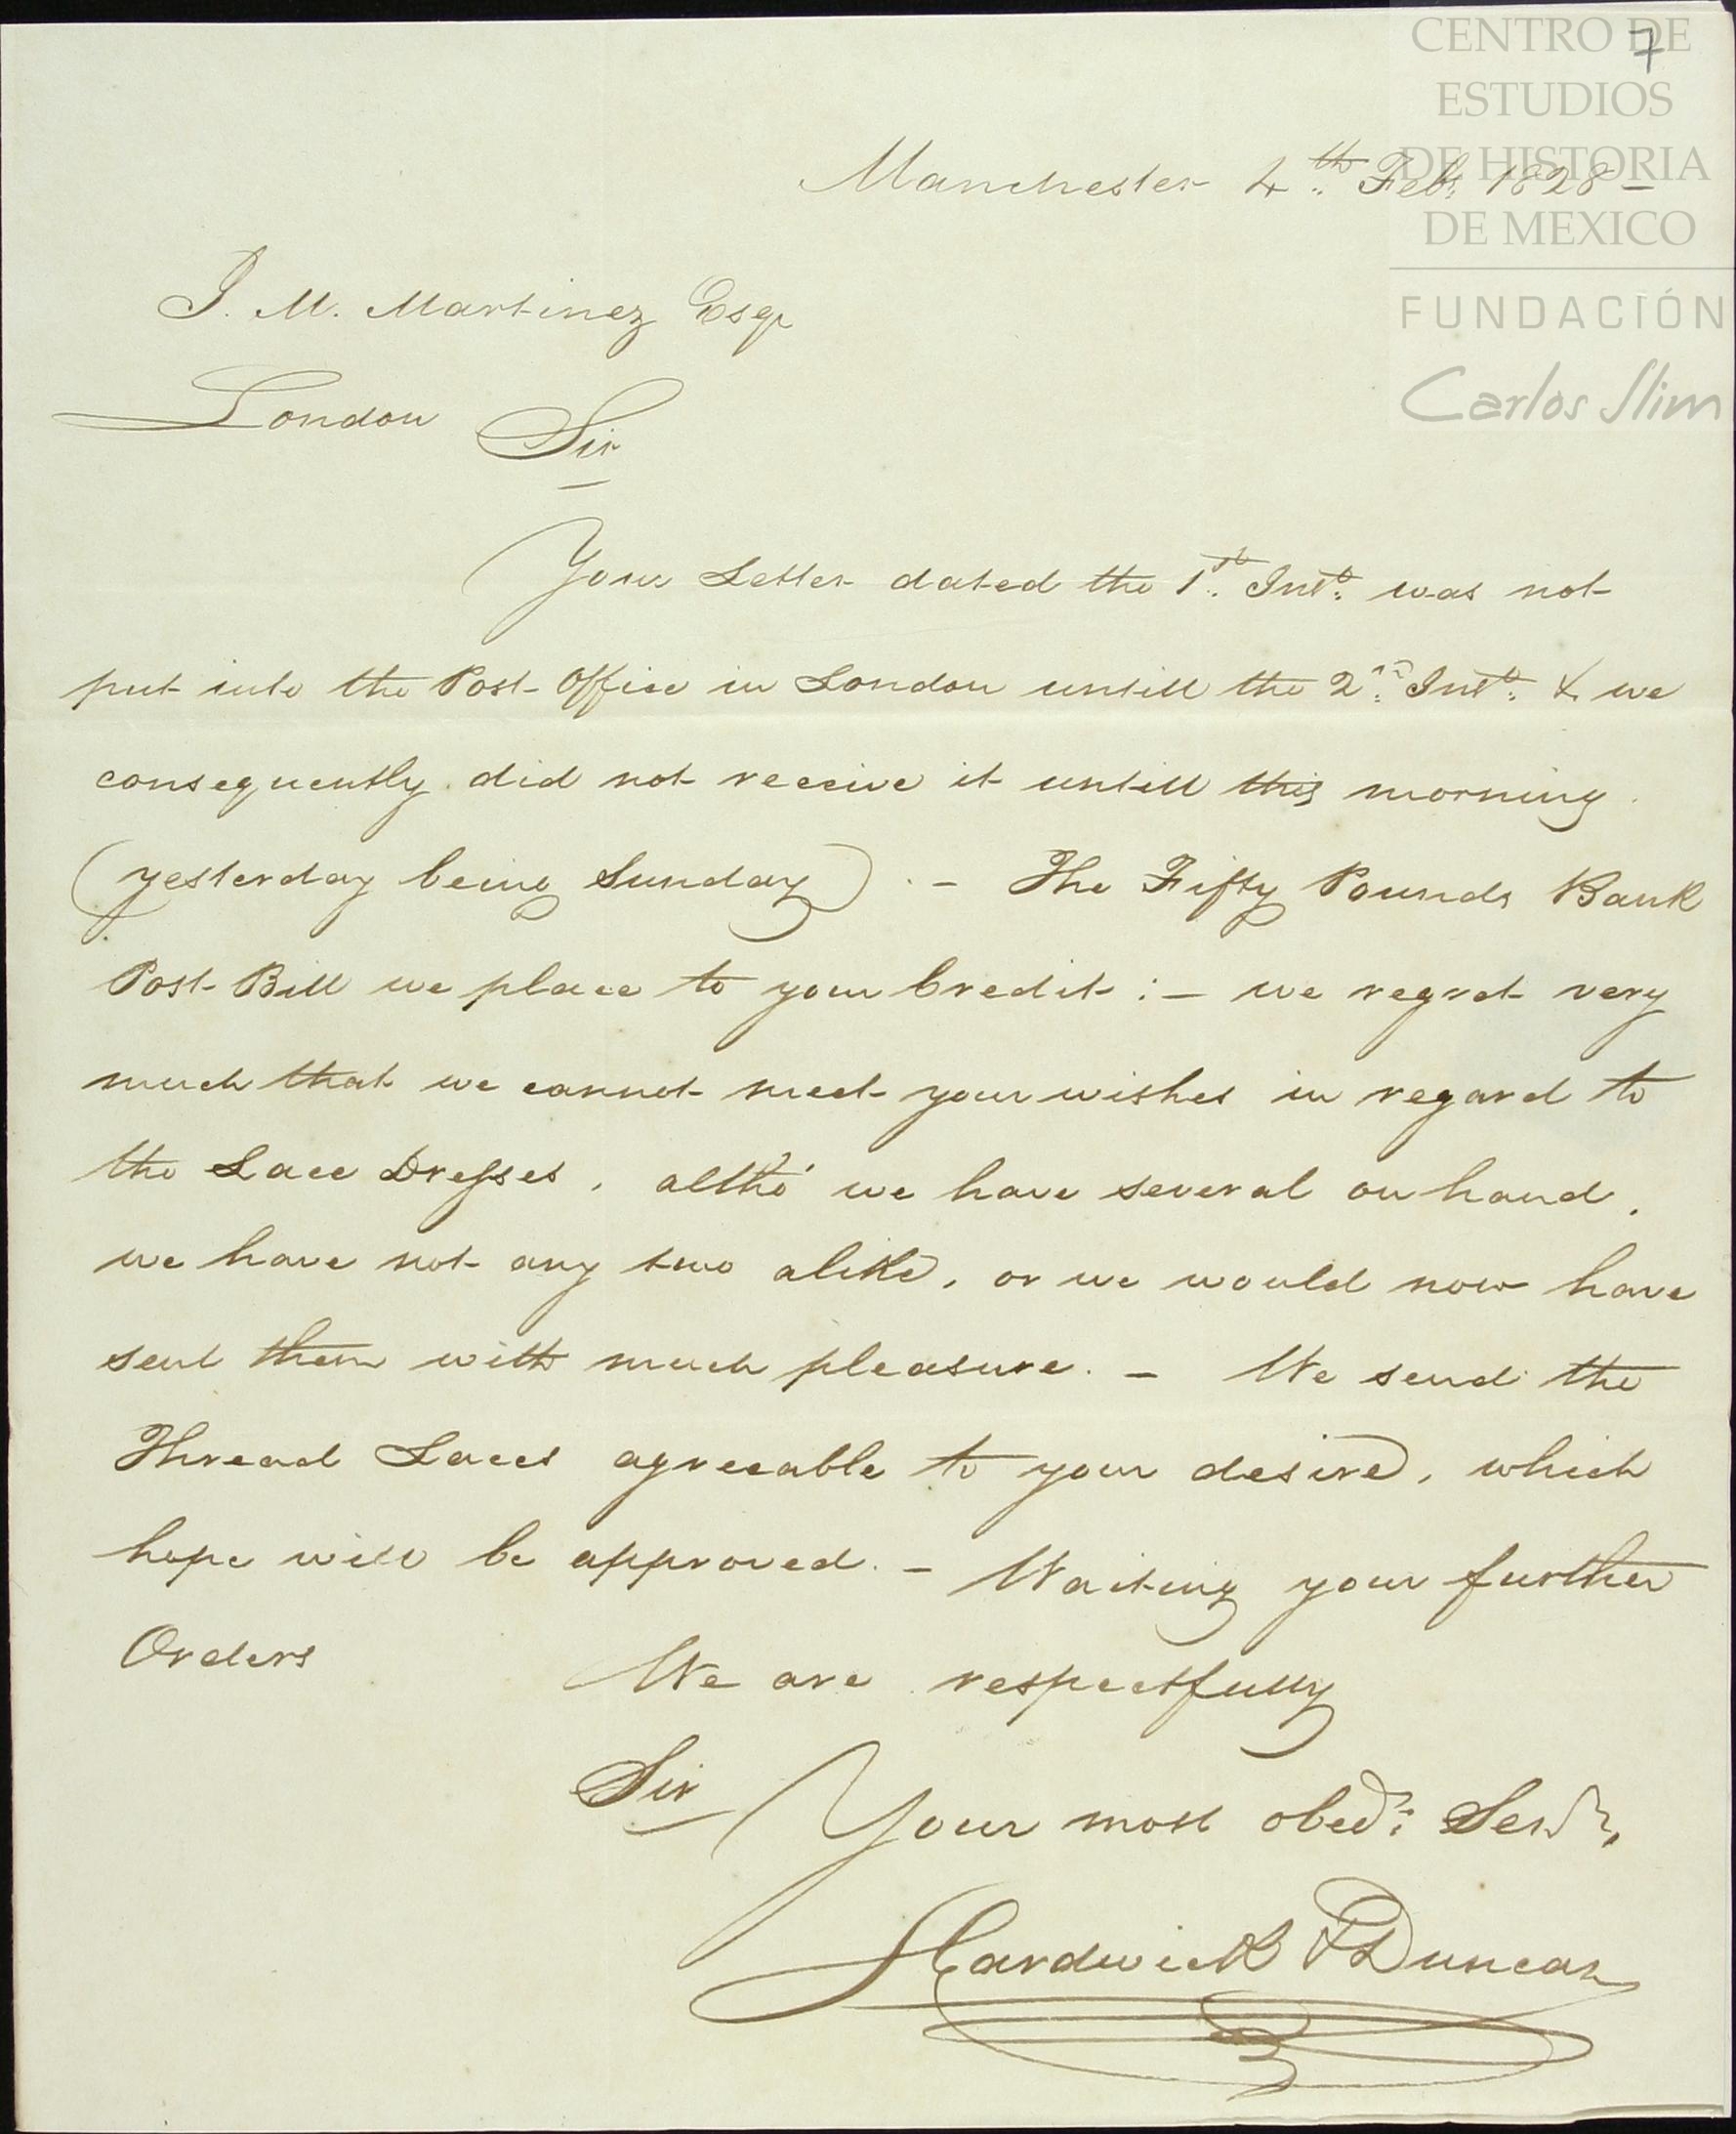 CENTRO DE
ESTUDIOS
DE HISTORIA
DE MEXICO
FUNDACIÓN
Carlos Slim
7
Manchester 4th Feby 1828 —
J. M. Martinez Esqr
London Sir
Your Letter dated the 1st Inst. was not
put into the Post Office in London untill the 2nd Inst. & we
consequently did not receive it untill this morning
(yesterday being Sunday). — The Fifty Pounds Bank
Post Bill we place to your Credit: — we regret very
much that we cannot meet your wishes in regard to
the Lace Dresses, altho' we have several on hand,
we have not any two alike, or we would now have
sent them with much pleasure. — We send the
Thread Laces agreeable to your desire, which
hope will be approved. — Waiting your further
Orders
We are respectfully
Sir
Your most obedt. Servts,
Hardwick & Duncan